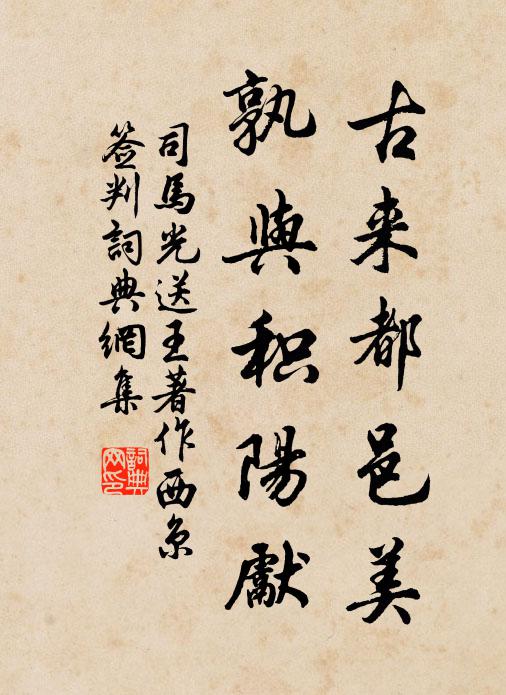 古来都邑美
孰與积陽獻
司馬光送王著作西京
签判詞典網集
詞典网印